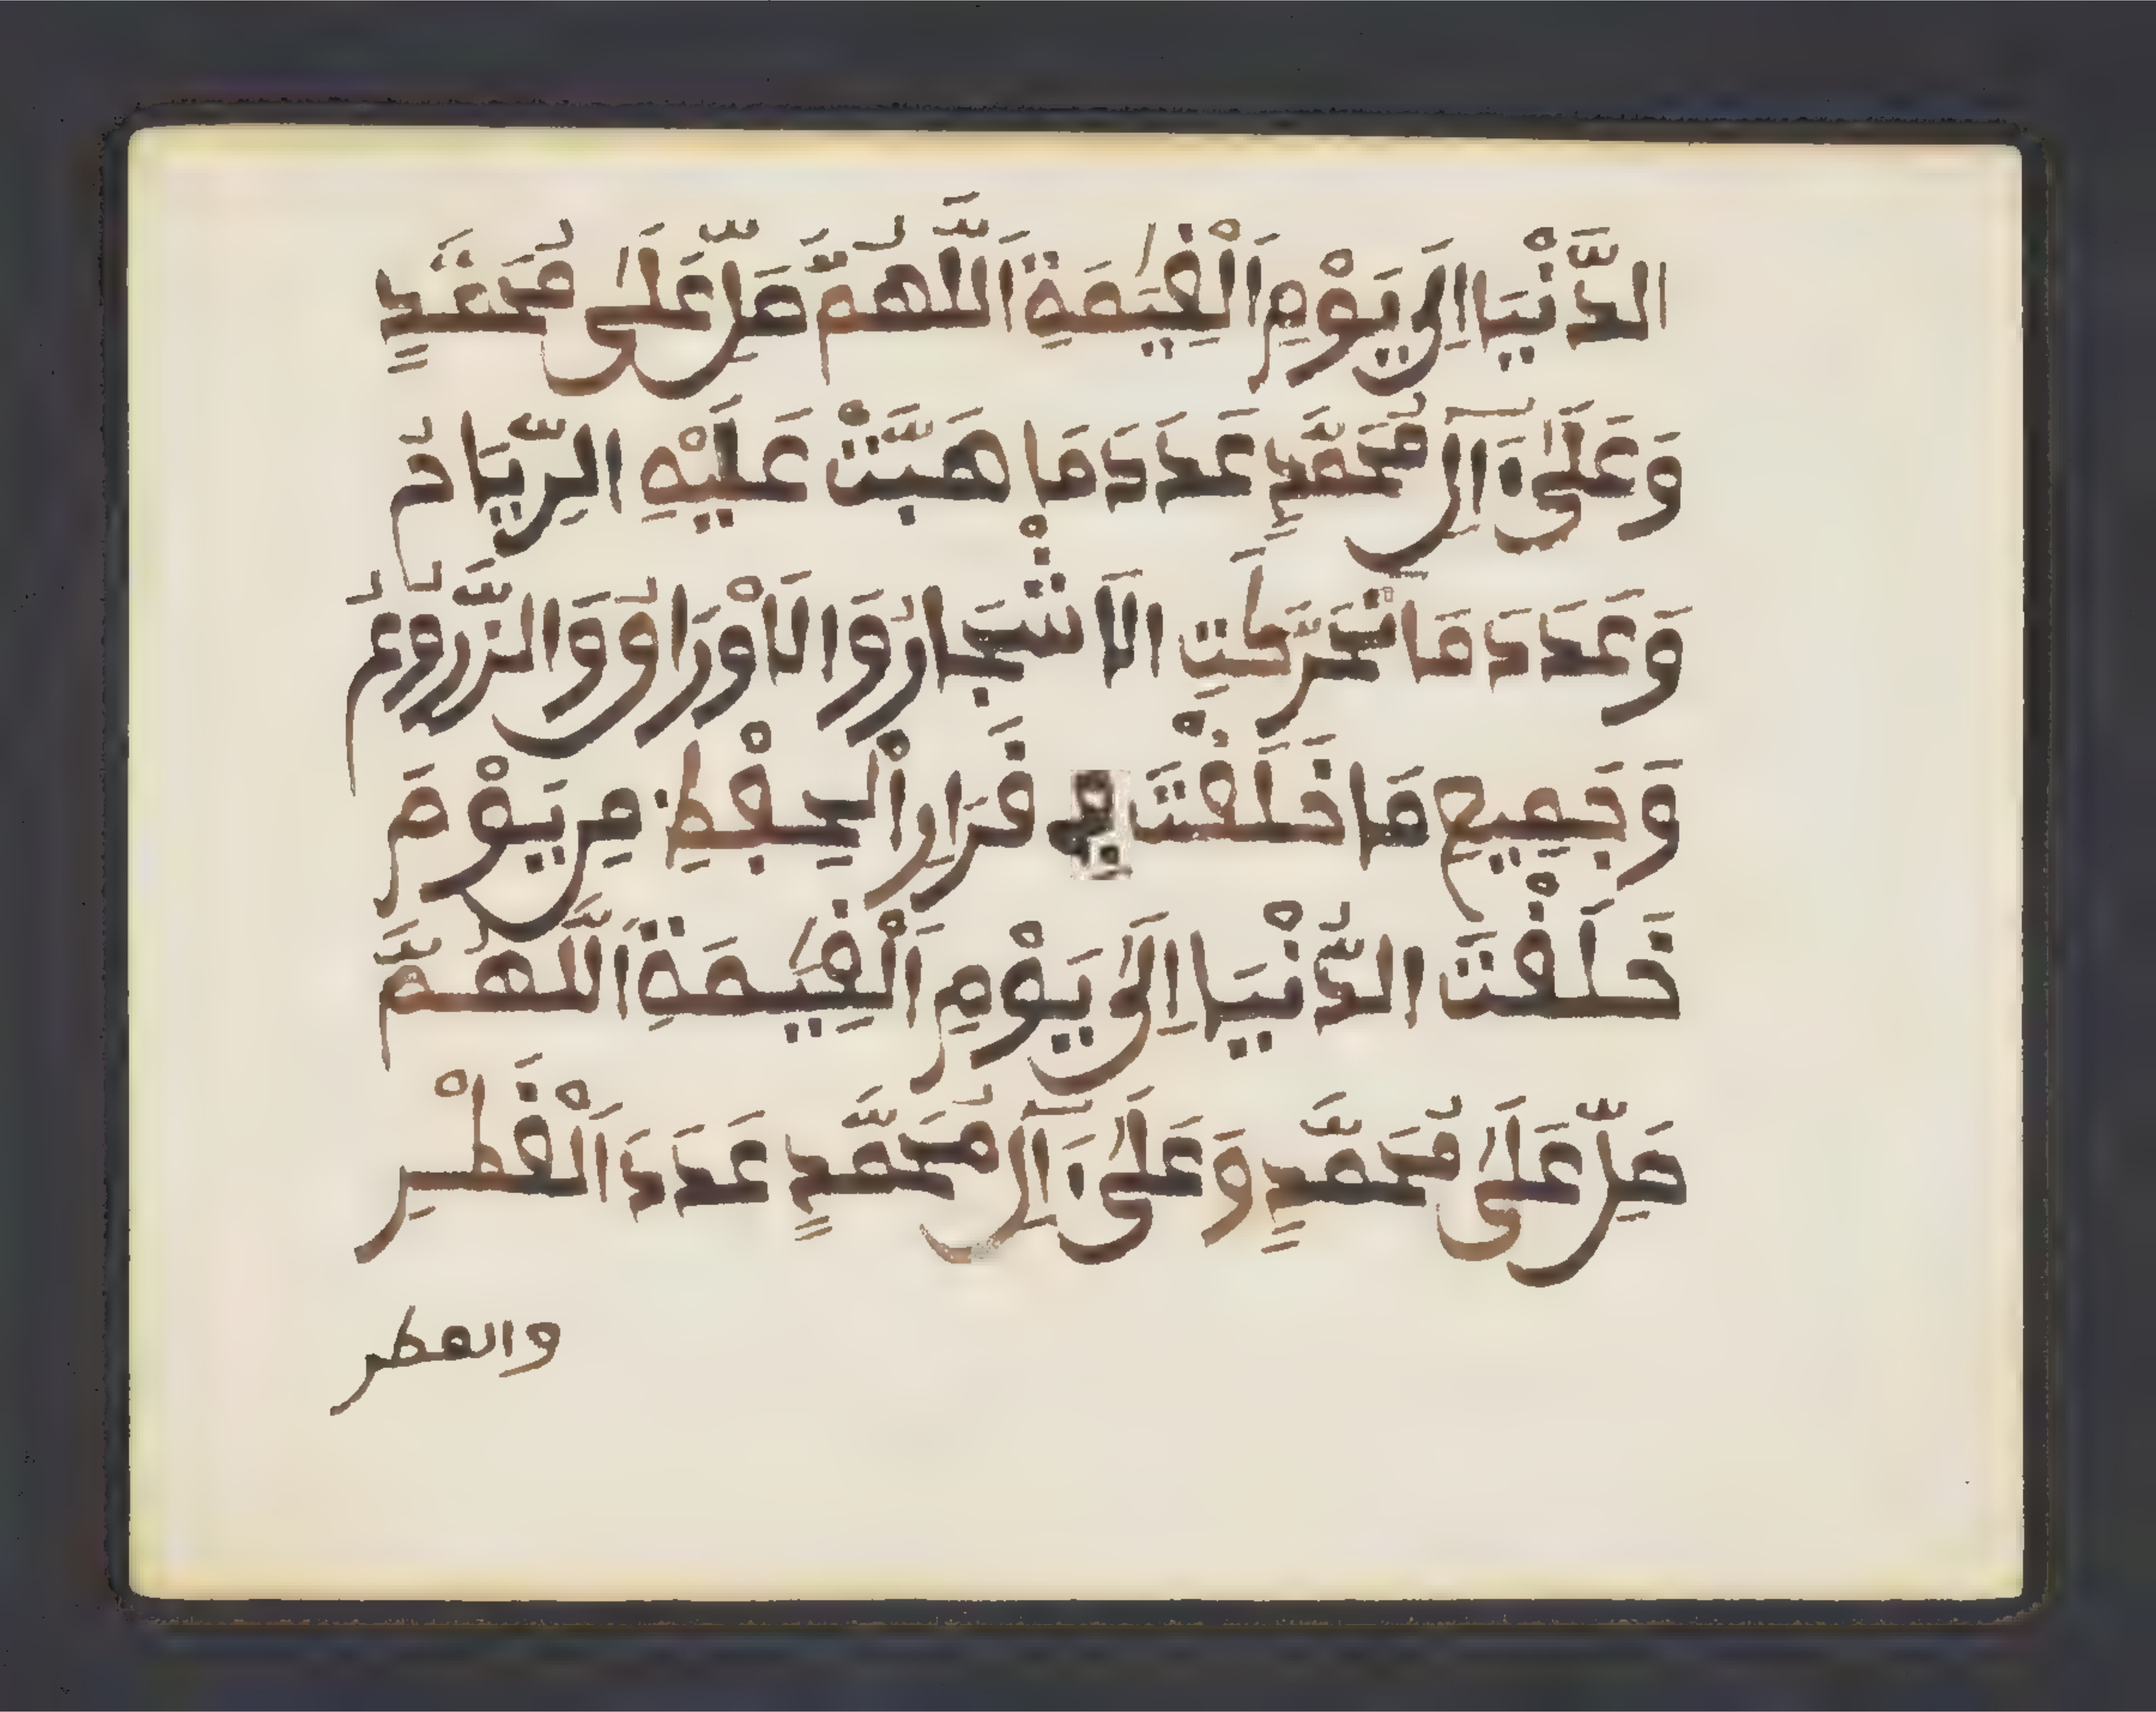 الدُّنْيَا اِلَى يَوْمِ اَلْقِيَٰمَةِ اَللَّهُمَّ صَلِّ عَلَى مُحَمَّدٍ
وَعَلَىٰٓ ءَالِ مُحَمَّدٍ عَدَدَ مَا هَبَّتْ عَلَيْهِ الرِّيَاحُ
وَعَدَدَ مَا تَحَرَّكَتِ الَاشْجَارُ وَالَاوْرَاقُ وَالزُّرُوعُ
وَجَمِيعِ مَا خَلَقْتَ فِي قَرَارِ اْلْحِفْظِ مِن يَوْمَ
خَلَقْتَ الدُّنْيَا اِلَىٰ يَوْمِ اَلْقِيَٰمَةِ اَللَّهُمَّ
صَلِّ عَلَىٰ مُحَمَّدٍ وَعَلَىٰٓ ءَالِ مُحَمَّدٍ عَدَدَ اَلْقَطْرِ
والمطر